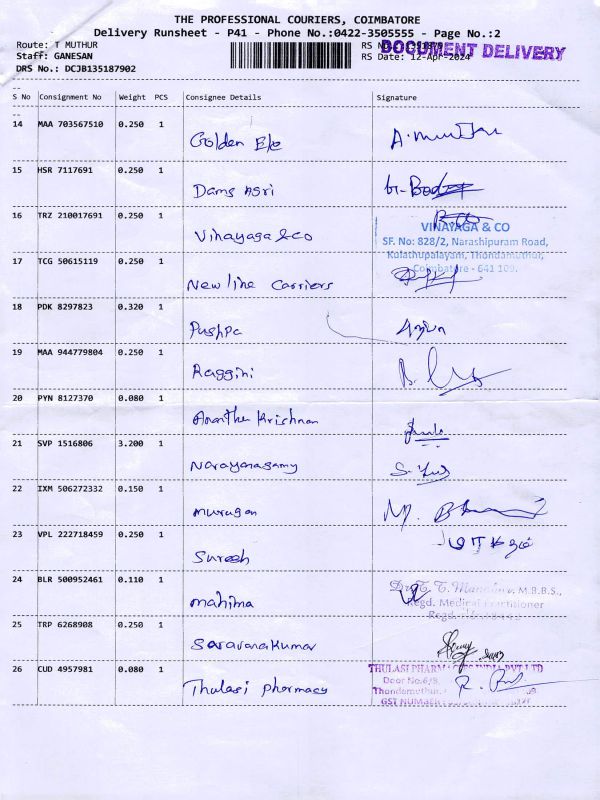 THE PROFESSIONAL COURIERS, COIMBATORE
Delivery Runsheet - P41 - Phone No.:0422-3505555 - Page No.:2
Route: T MUTHUR
RS No.:
DOCUMENT DELIVERY
Staff: GANESAN
RS Date: 12-Apr-2024
DRS No.: DCJB135187902
S No Consignment No Weight PCS Consignee Details Signature
14 MAA 703567510 0.250 1
Golden
15 HSR 7117691 0.250 1
Dams Asri
16 TRZ 210017691 0.250 1
Vinayaga & co
VINAYAGA & CO
SF. No: 828/2, Narashipuram Road,
Kulathupalayam, Thondamuthur,
Coimbatore - 641 109.
17 TCG 50615119 0.250 1
New line Carriers
18 PDK 8297823 0.320 1
Pushpa
19 MAA 944779804 0.250 1
Raggini
20 PYN 8127370 0.080 1
Anantha Krishnan
21 SVP 1516806 3.200 1
Narayanasamy
22 IXM 506272332 0.150 1
Murugan
23 VPL 222718459 0.250 1
Suresh
24 BLR 500952461 0.110 1
mahima
M.B.B.S.,
Regd. Medical Practitioner
25 TRP 6268908 0.250 1
Saravana Kumar
26 CUD 4957981 0.080 1
Thulasi pharmacy
THULASI PHARMACIES INDIA PVT LTD
Door No.6/8,
Thondamuthur,
GST NUMBER